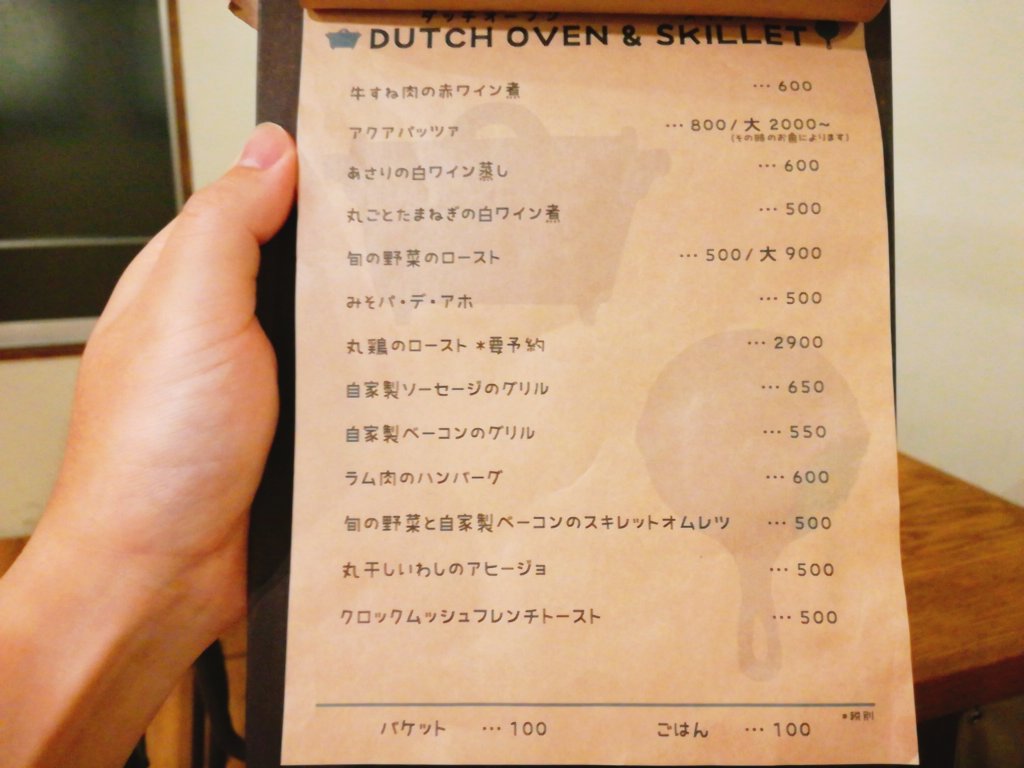 ダッチオーブン
DUTCH OVEN & SKILLET
牛すね肉の赤ワイン煮 … 600
アクアパッツァ … 800/大 2000~
(その時のお魚によります)
あさりの白ワイン蒸し … 600
丸ごとたまねぎの白ワイン煮 … 500
旬の野菜のロースト … 500/大 900
みそパ・デ・アホ … 500
丸鶏のロースト *要予約 … 2900
自家製ソーセージのグリル … 650
自家製ベーコンのグリル … 550
ラム肉のハンバーグ … 600
旬の野菜と自家製ベーコンのスキレットオムレツ … 500
丸干しいわしのアヒージョ … 500
クロックムッシュフレンチトースト … 500
*税別
バケット … 100 ごはん … 100